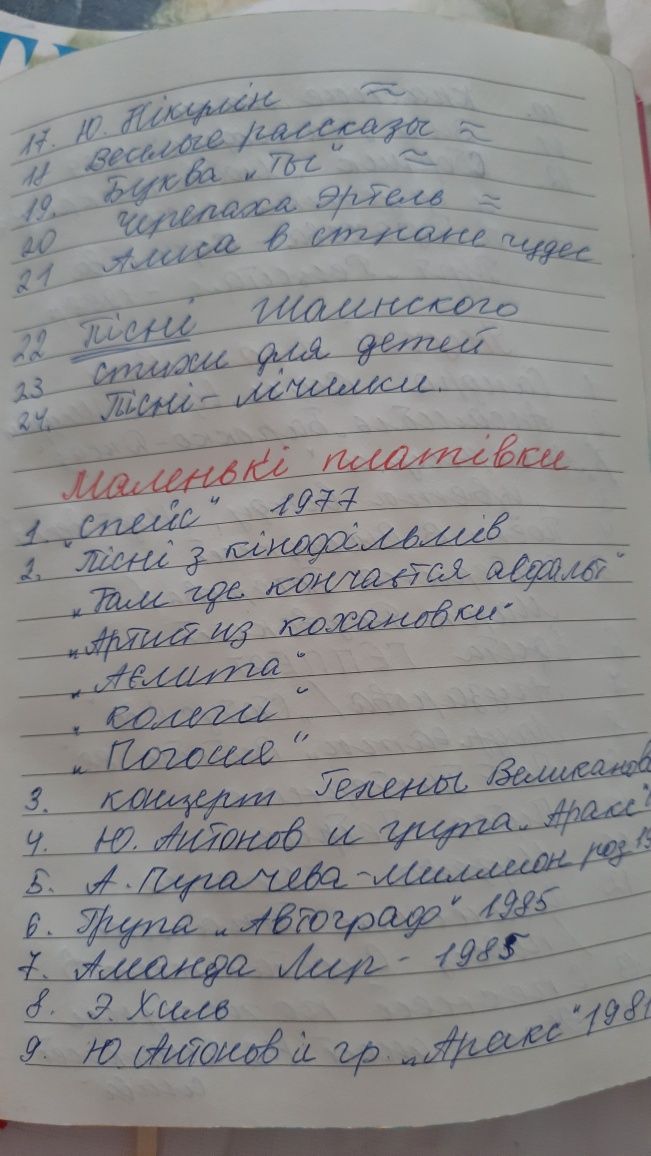 17. Ю. Нікулін ≈
18 Веселые рассказы ≈
19. Буква „Ты" ≈
20 Черепаха Эртель =
21 Алиса в стране чудес
22 Пісні Шаинского
23 стихи для детей
24. Пісні - лічилки.
Маленькі платівки
1. „Спейс" 1977
2. "Пісні з кінофільмів
„Там где кончается асфальт"
„Артист из кохановки"
„Аєлита"
„Колеги"
„Погоня"
3. концерт Гелены Великанов
4. Ю. Антонов и група „Аракс"
5. А. Пугачева - Миллион роз 19
6. Група „Автограф" 1985
7. Аманда Лир - 1985
8. Э. Хиль
9. Ю. Антонов и гр. „Аракс" 1981